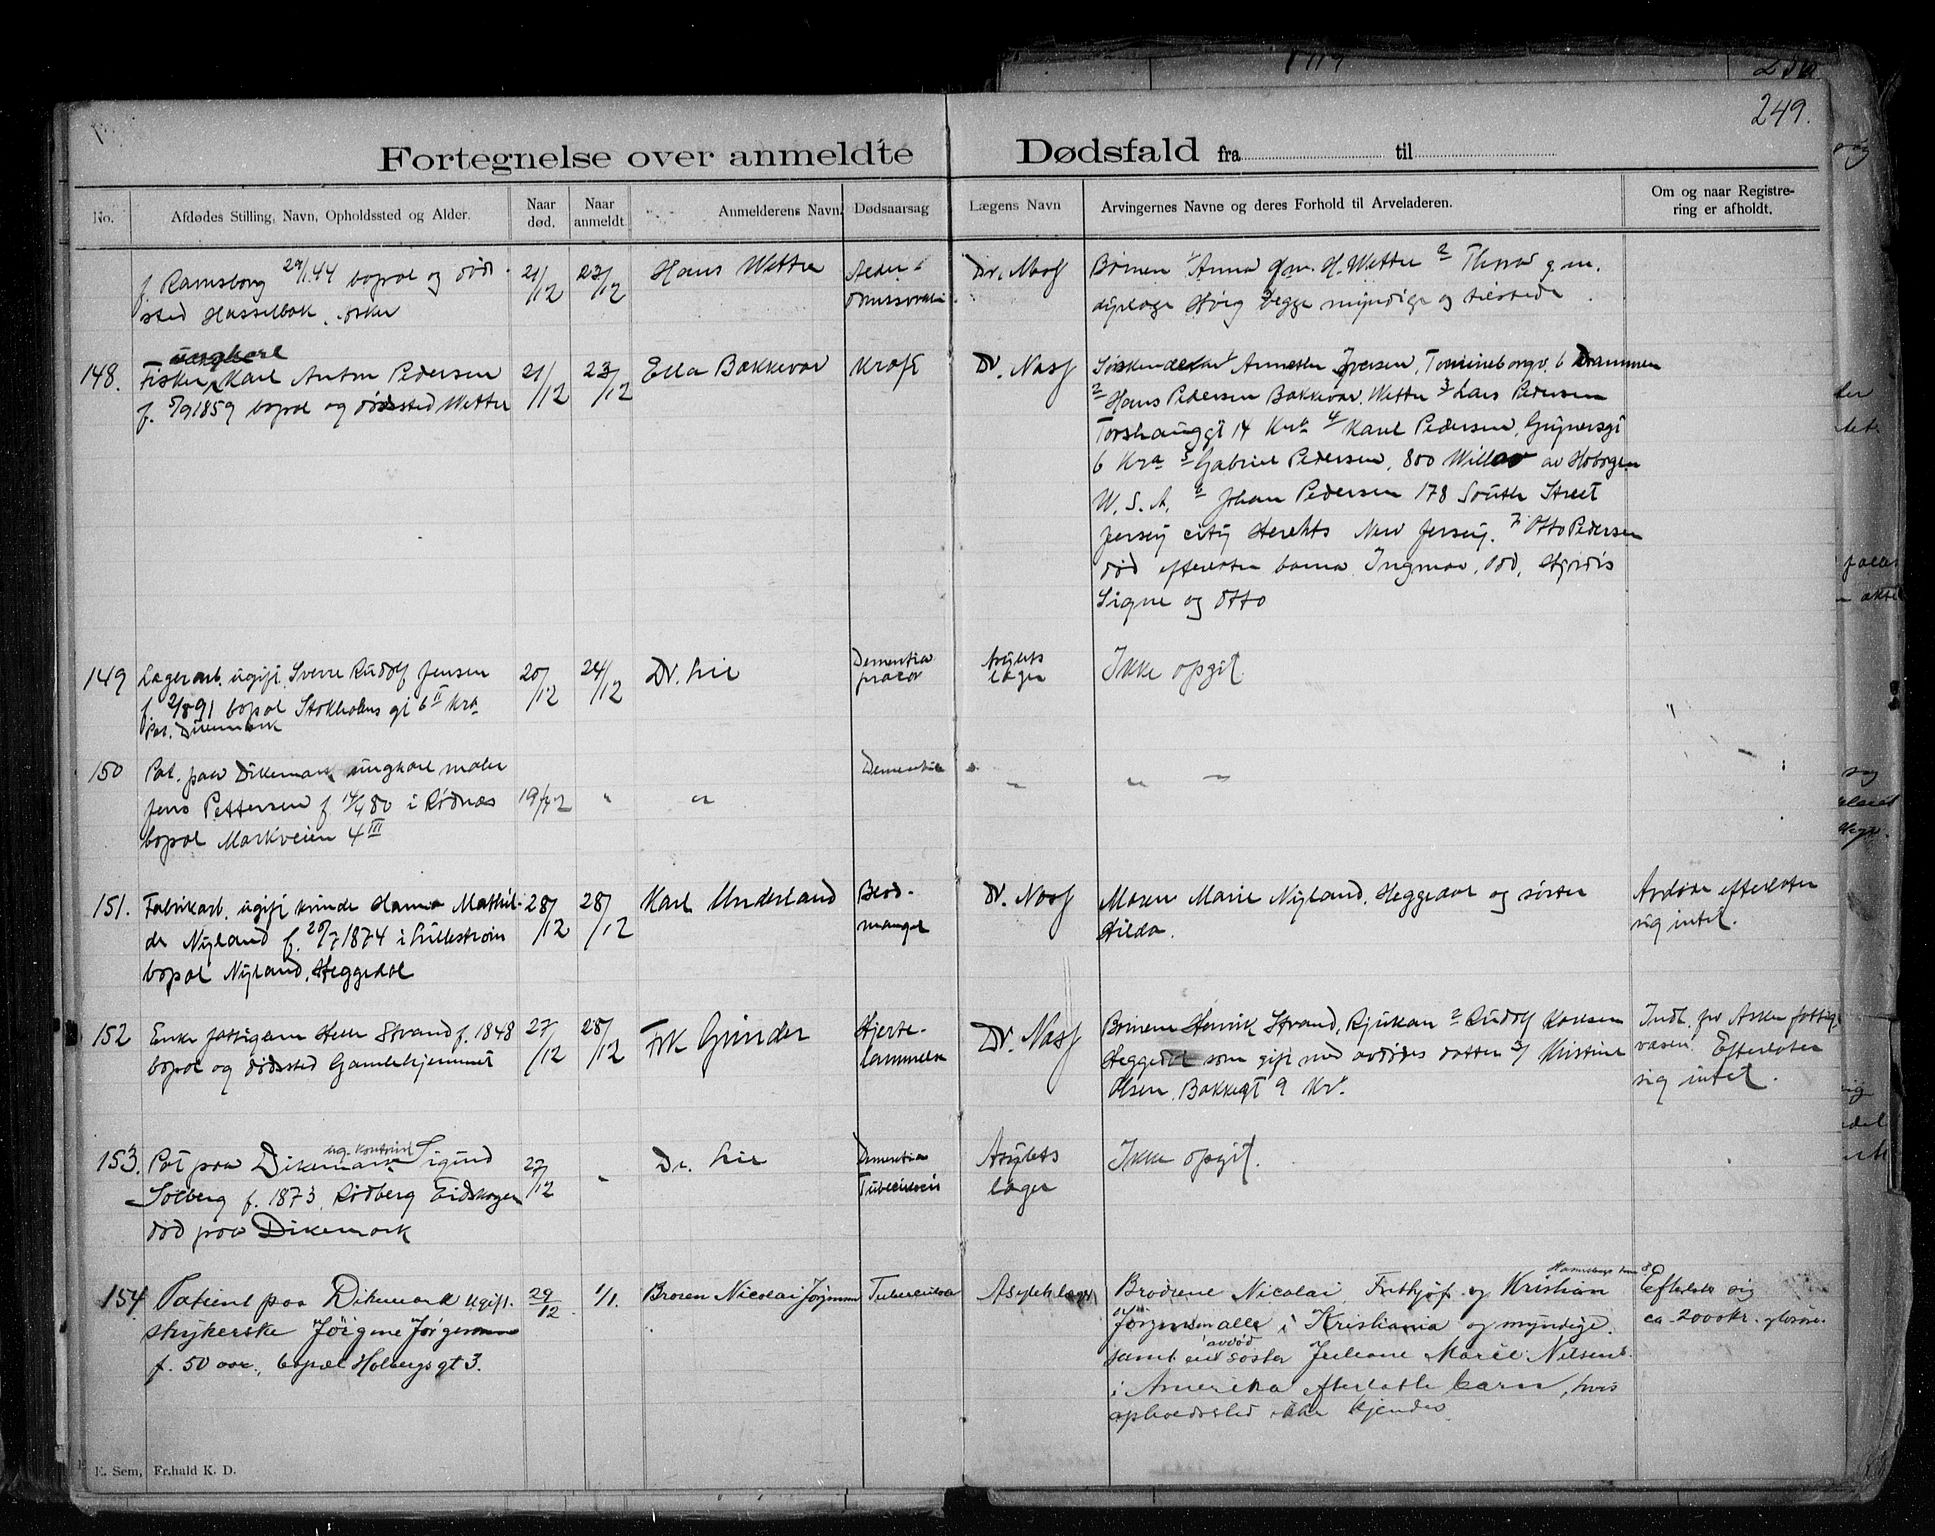 1919
249.
Fortegnelse over anmeldte Dødsfald fra til
No.
Afdødes Stilling, Navn, Opholdssted og Alder.
Naar død.
Naar anmeldt.
Anmelderens Navn.
Dødsaarsag
Lægens Navn
Arvingernes Navne og deres Forhold til Arveladeren.
Om og naar Registre-
ring er afholdt.
f. Ramsborg 29/1 44 bopæl og død
sted Hasselbak, Asker
21/12
23/12
Hans Wettre
Alder
Dr. Næss
Børnene 1 Anna gm. H. Wettre 2 Thora gm.
Høvig begge myndige og tilstede
148.
ungkarl
Fisker Karl Anton Pedersen
f. 5/9 1859 bopæl og dødssted Wettre
21/12
23/12
Ella Bakkevar
Kræft
Dr. Næss
Søskendeka 1 Annette Iversen, Tominieborgv. 6 Drammen
2 Hans Pedersen Bakkevar, Wettre 3 Lars Pedersen
Torshauggt 14 Kra 4 Karel Pedersen, Grünersgt
6 Kra 5 Gabriel Pedersen, 800 Willow av Hobogen
U. S. A. 6 Johan Pedersen 178 South Street
Jersey city Herehts New Jersey. 7 Otto Pedersen
død efterlater barna Ingmar, Odd, Hjørdis
Signe og Otto
149
Lagerarb. ugift Sverre Rudolf Jensen
f. 2/8 91 bopæl Stokholms gt 6 II Kra
Pat. Dikemark
20/12
24/12
Dr. Lie
Dementia
præcox
Asylets
læge
Ikke opgit
"
150
Pat. paa Dikemark ungkarl maler
Jens Pettersen f 14/4 80 i Rødnæs
bopæl Markveien 4 III
19/12
"
"
Dementia
"
" "
"
151.
Fabrikarb. ugift kvinde Hanna Mathil-
de Nyland f. 20/7 1874 i Lillestrøm
bopæl Nyland, Heggedal
28/12
28/12
Karl Underland
Blod-
mangel
Dr. Næss
Moren Marie Nyland, Heggedal og søster
Hilda.
Avdøde efterlater
sig intet.
152
Enke fattiglem Helle Strand f. 1848
bopæl og dødssted Gamlehjemmet
27/12
28/12
Frk Grinder
Hjerte-
lammelse
Dr. Næss
Børnene Henrik Strand, Rjukan 2 Rudolf Karlsen
Heggedal som gift med avdødes datter 3/ Kristine
Olsen, Bakkegt 9 Kr.
Indb. for Asker fattig-
væsen. Efterlater
sig intet.
153.
Pat paa Dikemark ug. kontorist Sigurd
Solberg f. 1873, Rødberg Eidskogen
død paa Dikemark
27/12
"
Dr. Lie
Dementia
Tuberculosis
Asylets
læge
Ikke opgit.
154
Patient paa Dikemark ugift.
strykerske Jørgine Jørgensen
f. 50 aar, bopæl Holbergs gt 3.
29/12
1/1.
Broren Nicolai Jørgensen
Tuberculose
Asylets læge
Brødrene Nicolai, Frithjof og Kristian
Jørgensen alle i Kristiania og myndige.
samt en avdød søster Juliane Marie Nilsens
i Amerika efterlatte barn, hvis
opholdssted ikke kjendes.
Efterlater sig
ca. 2000 kr.
E. Sem, Fr.hald K. D.